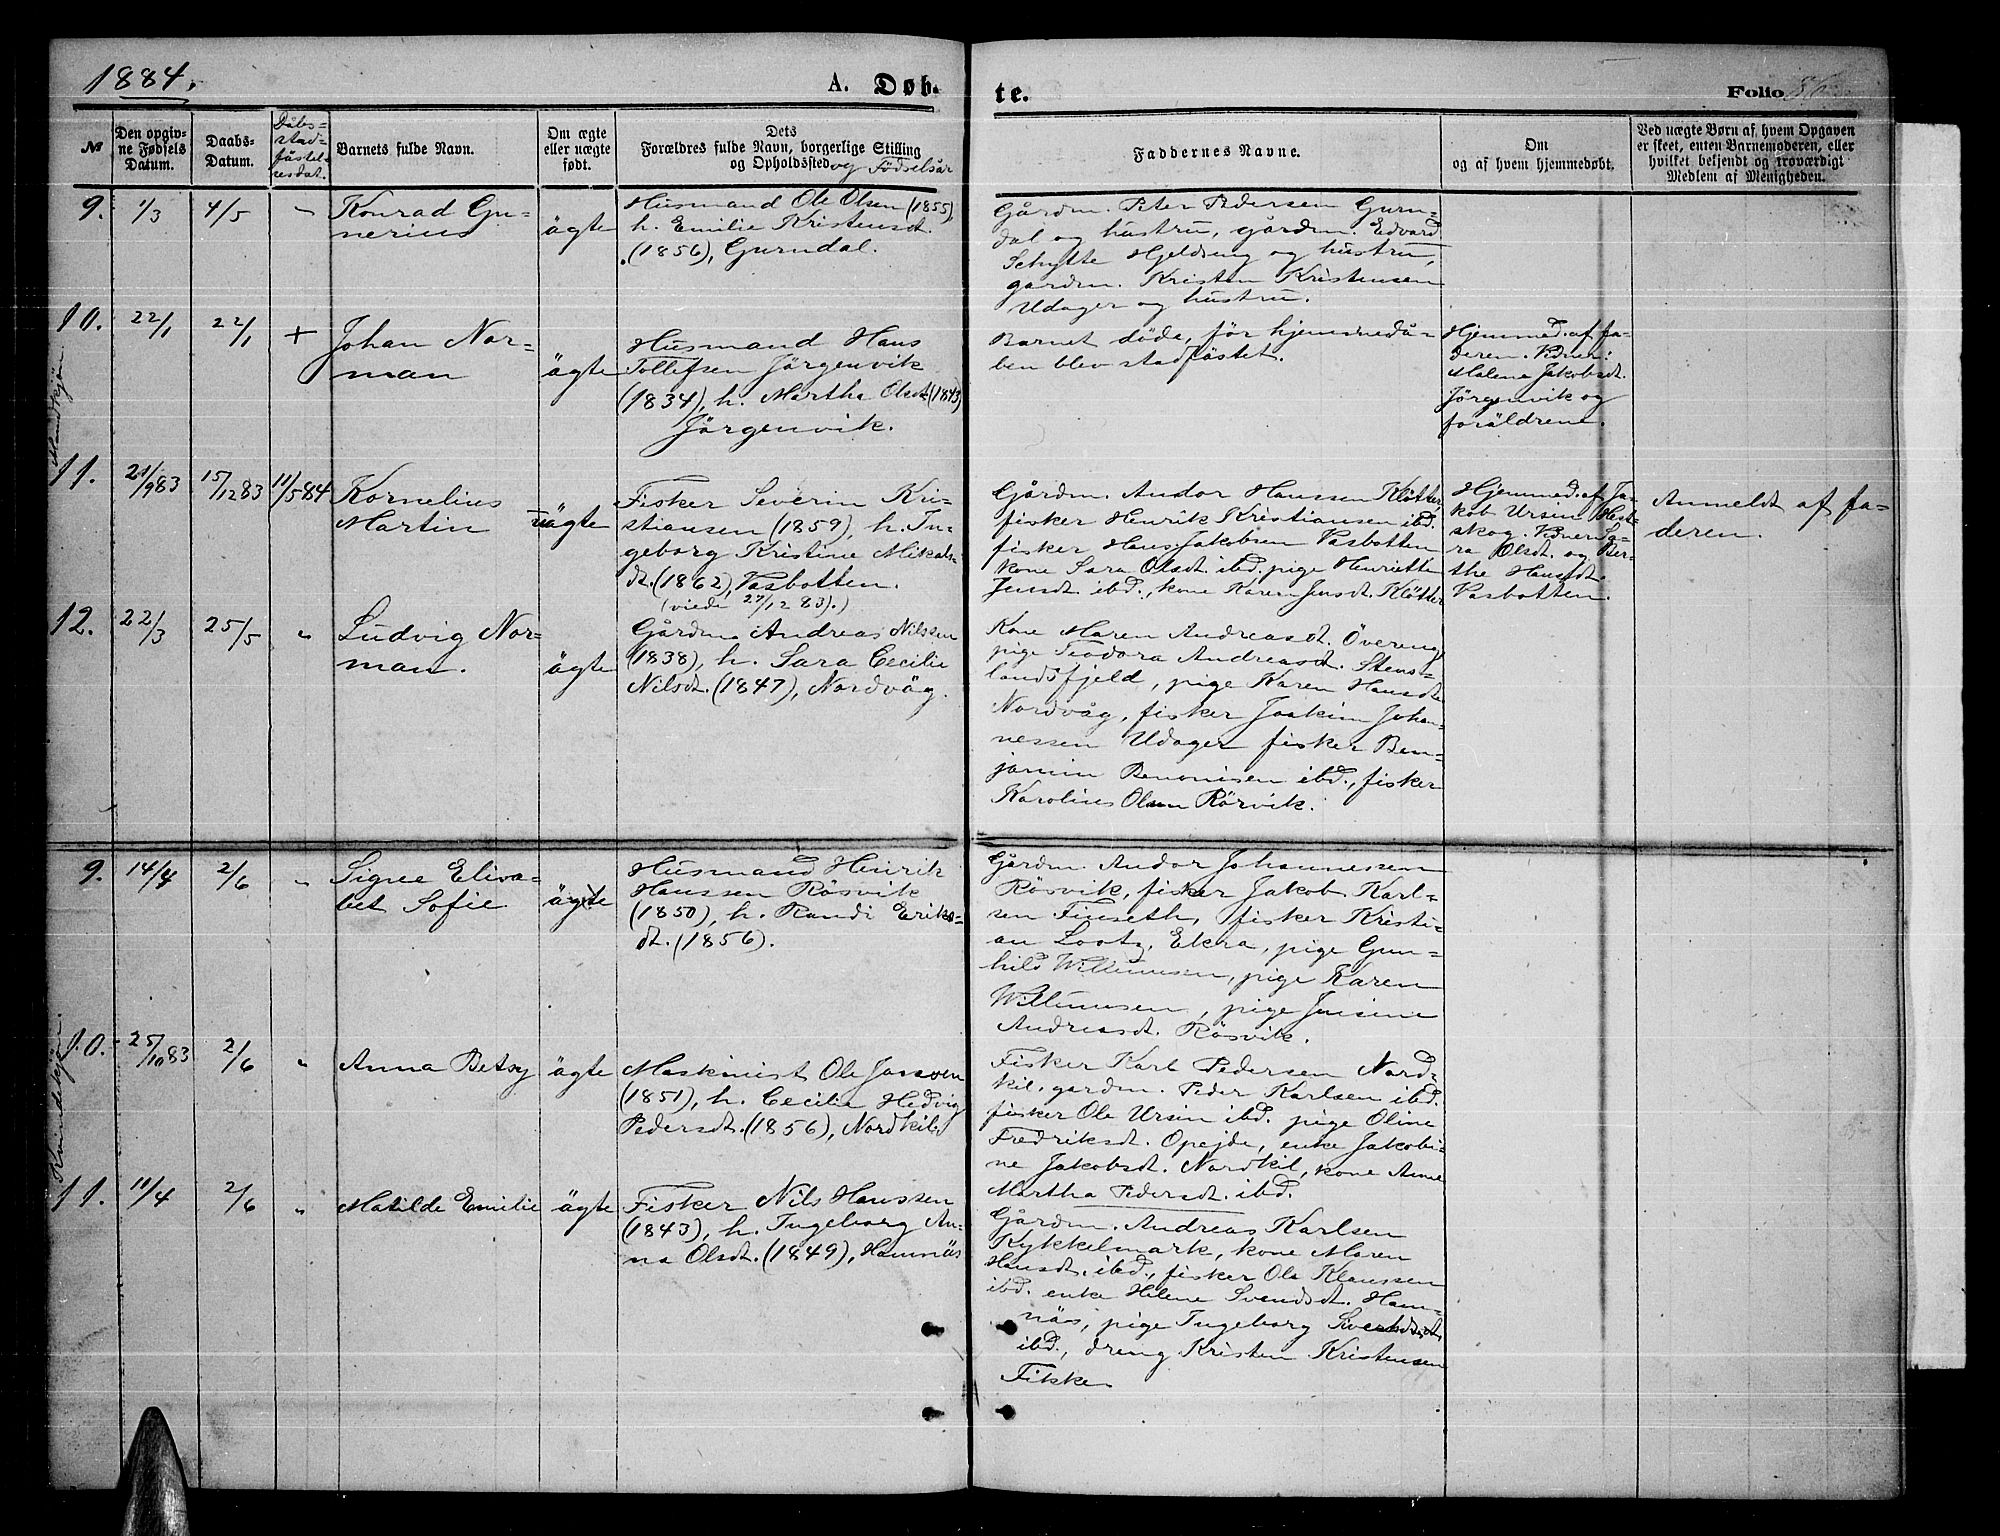 1884.
A. Døb-
te.
Folio
№
Den opgiv-
ne Fødsels
Datum.
Daabs-
Datum.
Dåbs-
stad-
fästel-
sesdat.
Barnets fulde Navn.
Om ægte
eller uægte
født.
Dets
Forældres fulde Navn, borgerlige Stilling
og Opholdssted og Födselsår
Faddernes Navne.
Om
og af hvem hjemmedøbt.
Ved uægte Børn af hvem Opgaven
er skeet, enten Barnemoderen, eller
hvilket bekjendt og troværdigt
Medlem af Menigheden.
Mandkjön.
9.
1/3
4/5
Konrad Gu-
nerius
ägte
Husmand Ole Olsen (1855),
h. Emilie Kristensdt.
(1856), Gurndal.
Gårdm. Peter Pedersen Gurn-
dal og hustru, gårdm. Edvard
Schytte Hjeldseng og hustru,
gårdm. Kristen Kristensen
Udager og hustru.
10.
22/1
22/1
+
Johan Nor-
man
ägte
Husmand Hans
Tollefsen Jörgenvik
(1834), h. Martha Olsdt (1843)
Jörgenvik.
Barnet döde, för hjemmedå-
ben blev stadfästet.
Hjemmed. af fa-
deren. Vidner:
Malene Jakobsdt.
Jörgenvik og
foräldrene.
11.
21/9 83
15/12 83
11/5 84
Kornelius
Martin
uägte
Fisker Severin Kri-
stiansen (1859), h. In-
geborg Kristine Mikals-
dt. (1862), Vasbotten.
(viede 27/12 83).)
Gårdm. Andor Hanssen Klötter,
fisker Henrik Kristiansen ibd.
fisker Hans Jakobsen Vasbotten
kone Sara Olsdt. ibd. pige Henriette
Jensdt ibd., kone Karen Jensdt. Klötter
Hjemmed. af Ja-
kob Ursin Hest-
skog. Vidner Sa-
ra Olsdt. og Ber-
the Hansdt.
Vasbotten.
Anmeldt af fa-
deren.
12.
22/3
25/5
"
Ludvig Nor-
man.
ägte
Gårdm. Andreas Nilssen
(1838), h. Sara Cecilie
Nilsdt. (1847), Nordvåg.
Kone Maren Andreasdt. Övereng
pige Teodora Andreasdt. Stens-
landsfjeld, pige Karen Hansdt
Nordvåg, fisker Joakim Johan-
nessen Udager fisker Ben-
jamin Benonisen ibd., fisker
Karolius Olsen Rörvik.
Kvindekjön.
9.
14/4
2/6
"
Signe Elisa-
bet Sofie
ägte
Husmand Henrik
Hanssen Rösvik
(1850), h. Randi Eriks-
dt. (1856).
Gårdm. Andor Johannessen
Rösvik, fisker Jakob Karl-
sen Finseth, fisker Kristi-
an Lootz, Ekra, pige Gun-
hild Willumsen, pige Karen
Willumsen, pige Jensine
Andreasdt. Rösvik.
10.
25/10 83
2/6
"
Anna Betsy
ägte
Maskinist Ole Janssen
(1851), h. Cecilie Hedvig
Pedersdt. (1856), Nordkil.
Fisker Karl Pedersen Nord-
kil, gårdm. Peder Karlsen ibd.
fisker Ole Ursin ibd. pige Oline
Fredriksdt. Opejde, enke Jakobi-
ne Jakobsdt. Nordkil, kone Anne
Martha Pedersdt. ibd.
11.
11/4
2/6
"
Matilde Emilie
ägte
Fisker Nils Hanssen
(1843), h. Ingeborg An-
na Olsdt. (1849), Hamnäs
Gårdm. Andreas Karlsen
Kykkelmark, kone Maren
Hansdt. ibd., fisker Ole Klaussen
ibd. enke Helene Svendsdt. Ham-
näs, pige Ingeborg Sivertsdt.
ibd., dreng Kristen Kristensen
Fiske